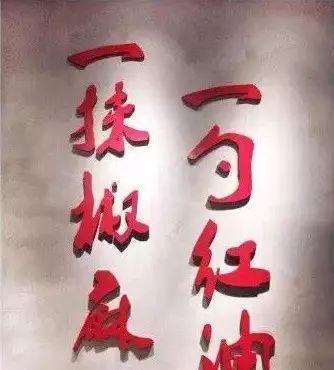 一抹椒麻
一勺红油